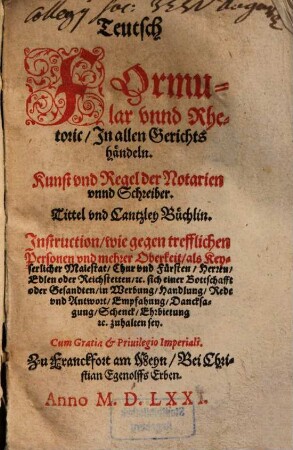 Collegij Soc: Jesu Augustæ
Teutsch
FOrmu-
lar vnnd Rhe-
toric / In allen Gerichts
händeln.
Kunst vnd Regel der Notarien
vnnd Schreiber.
Tittel vnd Cantzley Büchlin.
Instruction / wie gegen trefflichen
Personen vnd mehrer Oberkeit / als Key-
serlicher Maiestat / Chur vnd Fürsten / Herren /
Edlen oder Reichstetten / ꝛc. sich einer Bottschafft
oder Gesandten / in Werbung / Handlung / Rede
vnd Antwort / Empfahung / Dancksa-
gung / Schenck / Ehrbietung
ꝛc. zuhalten sey.
Cum Gratia & Priuilegio Imperiali.
Zu Franckfort am Meyn / Bei Chri-
stian Egenolffs Erben.
Anno M. D. LXXI.